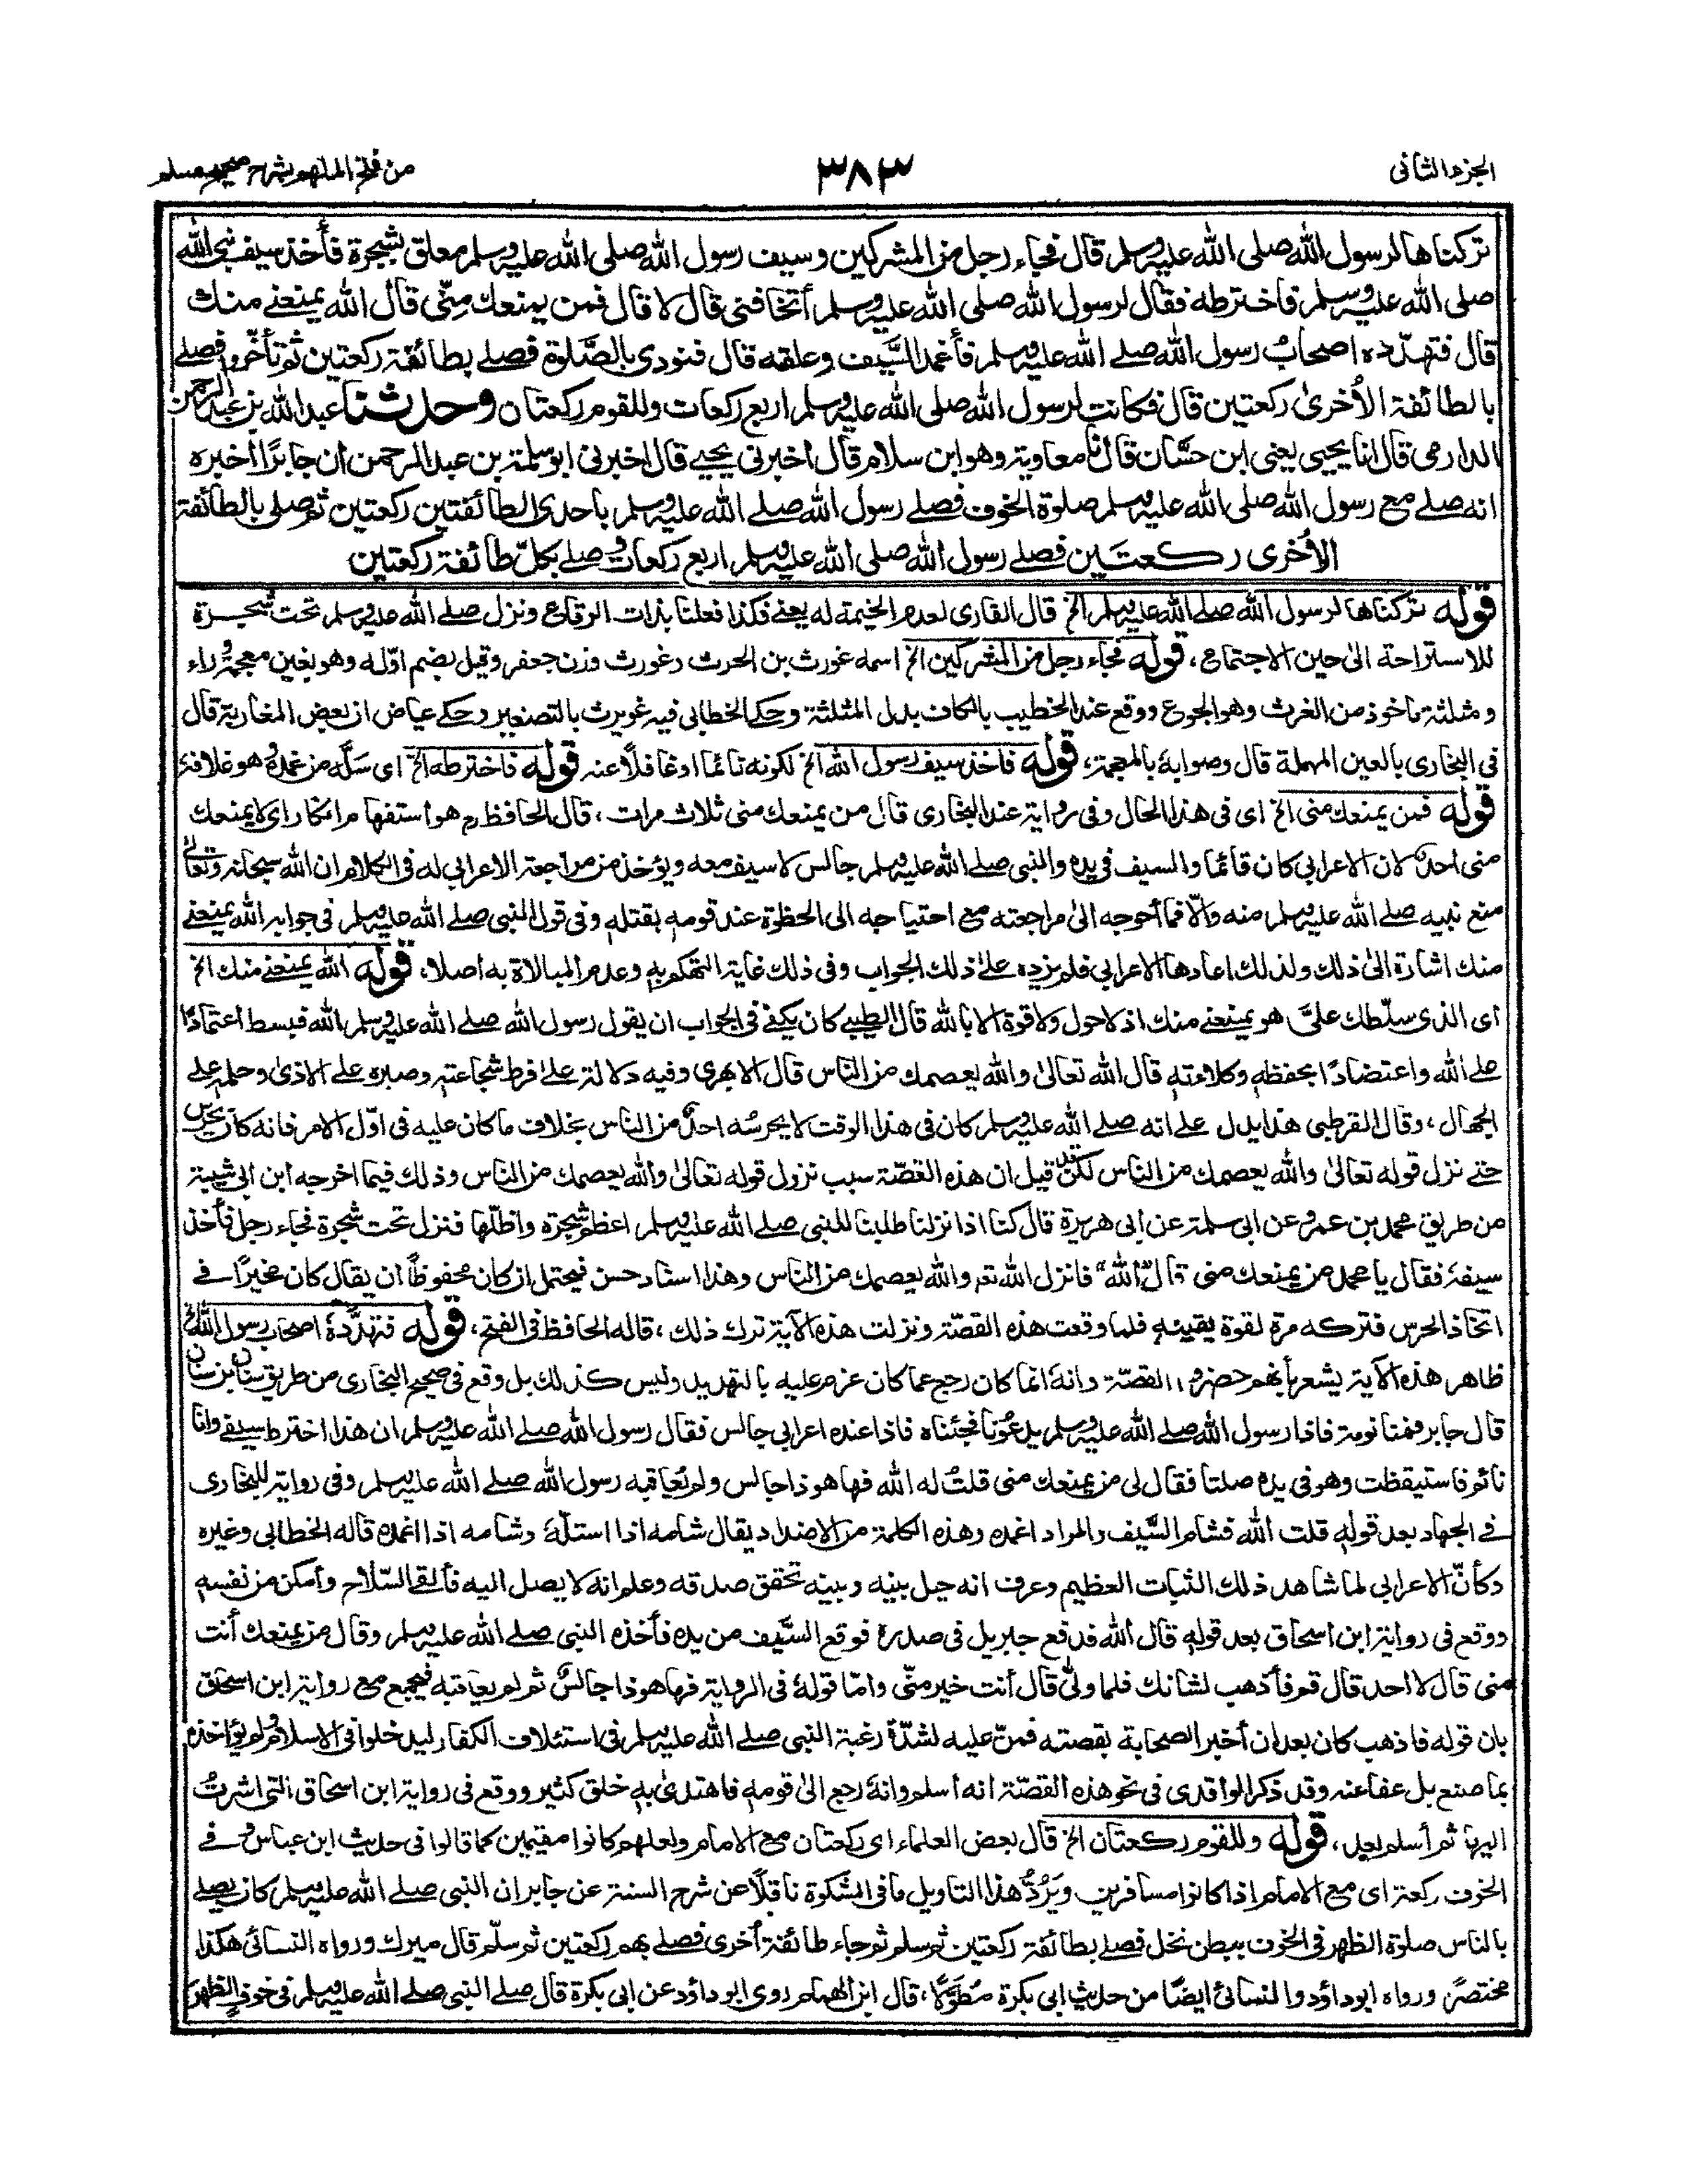 الجزء الثانی
٣٨٣
من فتح الملهم بشرح صحیح مسلم
ترکناها لرسول الله صلی الله علیه وسلم قال فجاء رجل من المشرکین وسیف رسول الله صلی الله علیه وسلم معلق بشجرة فأخذ سیف نبی الله
صلی الله علیه وسلم فاخترطه فقال لرسول الله صلی الله علیه وسلم أتخافنی قال لا قال فمن یمنعك مِنّی قال الله یمنعنے منك
قال فتهدّده اصحابُ رسول الله صلے الله علیه وسلم فأغمد السَّیف وعلقه قال فنودی بالصَّلوة فصلے بطائفة رکعتین ثم تأخّروا فصلے
بالطائفة الأُخریٰ رکعتین قال فکانت لرسول الله صلی الله علیه وسلم اربع رکعات وللقوم رکعتان وحدثنا عبد الله بن عبد الرحمن
الدارمی قال انا یحیی یعنی ابن حسّان قال نا معاویة وهو ابن سلام قال اخبرنی یحیے قال اخبرنی ابو سلمة بن عبد الرحمن ان جابرًا أخبره
انه صلے مع رسول الله صلی الله علیه وسلم صلوة الخوف فصلے رسول الله صلے الله علیه وسلم باحدی الطائفتین رکعتین ثم صلی بالطائفة
الأخری رکعتَین فصلے رسول الله صلی الله علیه وسلم اربع رکعات وصلے بکلّ طائفة رکعتین
قوله ترکناها لرسول الله صلے الله علیه وسلم الخ قال القاری لعدم الخیمة له یعنے فکذا فعلنا بذات الرقاع ونزل صلے الله علیه وسلم تحت شجرة
للاستراحة الیٰ حین الاجتماع، قوله فجاء رجل من المشرکین الخ اسمه غورث بن الحرث وغورث وزن جعفر وقیل بضم اوّله وهو بغین معجمة وراء
ومثلثة ماخوذ من الغرث وهو الجوع ووقع عند الخطیب بالکاف بدل المثلثة وحکے الخطابی فیه غویرث بالتصغیر وحکے عیاض ان بعض المغاربة قال
فی البخاری بالعین المهملة قال وصوابهٔ بالمعجمة، قوله فاخذ سیف رسول الله الخ لکونه نائما او غافلًا عنه قوله فاخترطه الخ ای سَلَّه من غمده وهو غلافهٔ
قوله فمن یمنعك منی الخ ای فی هذا الحال وفی روایة عند البخاری قال من یمنعك منی ثلاث مرات، قال الحافظ رح هو استفهام انکار ای لا یمنعك
منی احدٌ لان الاعرابی کان قائما والسیف فی یده والنبی صلے الله علیه وسلم جالس لا سیف معه ویؤخذ من مراجعة الاعرابی له فی الکلام ان الله سبحانه وتعالیٰ
منع نبیه صلے الله علیه وسلم منه والّا فما أحوجه الیٰ مراجعته مع احتیاجه الی الحظوة عند قومهٖ بقتلهٖ وفی قول النبی صلے الله علیه وسلم فی جوابه الله یمنعنے
منك اشارة الیٰ ذلك ولذلك اعادها الاعرابی فلم یزده علےٰ ذلك الجواب وفی ذلك غایة التهکم بهٖ وعدم المبالاة به أصلا، قوله الله یمنعنے منك الخ
ای الذی سلّطك علیَّ هو یمنعنے منك اذ لا حول ولا قوة الا بالله قال الطیبے کان یکفے فی الجواب ان یقول رسول الله صلے الله علیه وسلم الله فبسط اعتمادًا
علے الله واعتضادًا بحفظهٖ وکلاءتهٖ قال الله تعالیٰ والله یعصمك من الناس قال الابهری وفیه دلالة علےٰ فرط شجاعتهٖ وصبره علے الاذیٰ وحلمهٖ علے
الجهال، وقال القرطبی هذا یدل علے انه صلے الله علیه وسلم کان فی هذا الوقت لا یحرسُه احدٌ من الناس بخلاف ما کان علیه فی اوّل الامر فانه کان یُحرَس
حتے نزل قوله تعالیٰ والله یعصمك من الناس لکن قد قیل ان هذه القصّة سبب نزول قوله تعالیٰ والله یعصمك من الناس وذلك فیما اخرجه ابن ابی شیبة
من طریق محمد بن عمرو عن ابی سلمة عن ابی هریرة قال کنا اذا نزلنا طلبنا للنبی صلے الله علیه وسلم اعظم شجرة واظلّها فنزل تحت شجرة فجاء رجل فأخذ
سیفهٔ فقال یا محمد من یمنعك منی قال "الله" فانزل الله تعم والله یعصمك من الناس وهذا اسناد حسن فیحتمل ان کان محفوظًا ان یقال کان مخیرًا فے
اتخاذ الحرس فترکه مرة لقوة یقینهٖ فلما وقعت هذه القصّة ونزلت هذه الآیة ترك ذلك، قاله الحافظ فی الفتح، قوله فتهدَّدهٔ اصحاب رسول الله الخ
ظاهر هذه الآیة یشعر بأنهم حضروا القصّة وانهٔ انما کان رجع عما کان عزم علیه بالتهدید ولیس کذلك بل وقع فی صحیح البخاری من طریق سنان بن سنان
قال جابر فنمنا نومة فاذا رسول الله صلے الله علیه وسلم یدعُونا فجئناه فاذا عنده اعرابی جالس فقال رسول الله صلے الله علیه وسلم ان هذا اخترط سیفے وانا
نائم فاستیقظت وهو فی یده صلتا فقال لی من یمنعك منی قلتُ له الله فها هو ذا جالس ولم یُعاقبه رسول الله صلے الله علیه وسلم وفی روایة للبخاری
فے الجهاد بعد قولهٖ قلت الله فشام السَّیف والمراد اغمده وهذه الکلمة من الاضداد یقال شامه اذا استلّهٔ وشامه اذا اغمده قاله الخطابی وغیره
وکأنّ الاعرابی لما شاهد ذلك الثبات العظیم وعرف انه حیل بینه وبینه تحقق صدقه وعلم انه لا یصل الیه فألقے السّلاح وأمکن من نفسهٖ
ووقع فی روایة ابن اسحاق بعد قولهٖ قال الله فدفع جبریل فی صدرهٖ فوقع السّیف من یده فأخذه النبی صلے الله علیه وسلم وقال من یمنعك أنت
منی قال لا احد قال قم فأذهب لشانك فلما ولّی قال أنت خیر منّی وامّا قولهٔ فی الروایة فها هو ذا جالسٌ ثم لم یعاقبه فیجمع مع روایة ابن اسحاق
بان قوله فاذهب کان بعد ان أخبر الصحابة بقصته فمنّ علیه لشدّة رغبة النبی صلے الله علیه وسلم فی استئلاف الکفار لیدخلوا فی الاسلام ولم یؤاخذه
بما صنع بل عفا عنه وقد ذکر الواقدی فی نحو هذه القصّة انه أسلم وانهٔ رجع الیٰ قومهٖ فاهتدیٰ بهٖ خلق کثیر ووقع فی روایة ابن اسحاق التی اشرتُ
الیها ثم أسلم بعد، قوله وللقوم رکعتان الخ قال بعض العلماء ای رکعتان مع الامام ولعلهم کانوا مقیمین کما قالوا فی حدیث ابن عباس وفے
الخوف رکعة ای مع الامام اذا کانوا مسافرین ویَرُدُّ هذا التاویل ما فی المشکوة ناقلًا عن شرح السنة عن جابر ان النبی صلے الله علیه وسلم کان یصلے
بالناس صلوة الظهر فی الخوف ببطن نخل فصلے بطائفة رکعتین ثم سلم ثم جاء طائفة أُخری فصلے بهم رکعتین ثم سلّم قال میرك ورواه النسائی هکذا
مختصرً ورواه ابو داؤد والنسائی ایضًا من حدیث ابی بکرة مُطَوَّلًا، قال ابن الهمام روی ابو داؤد عن ابی بکرة قال صلے النبی صلے الله علیه وسلم فی خوف الظهرَ